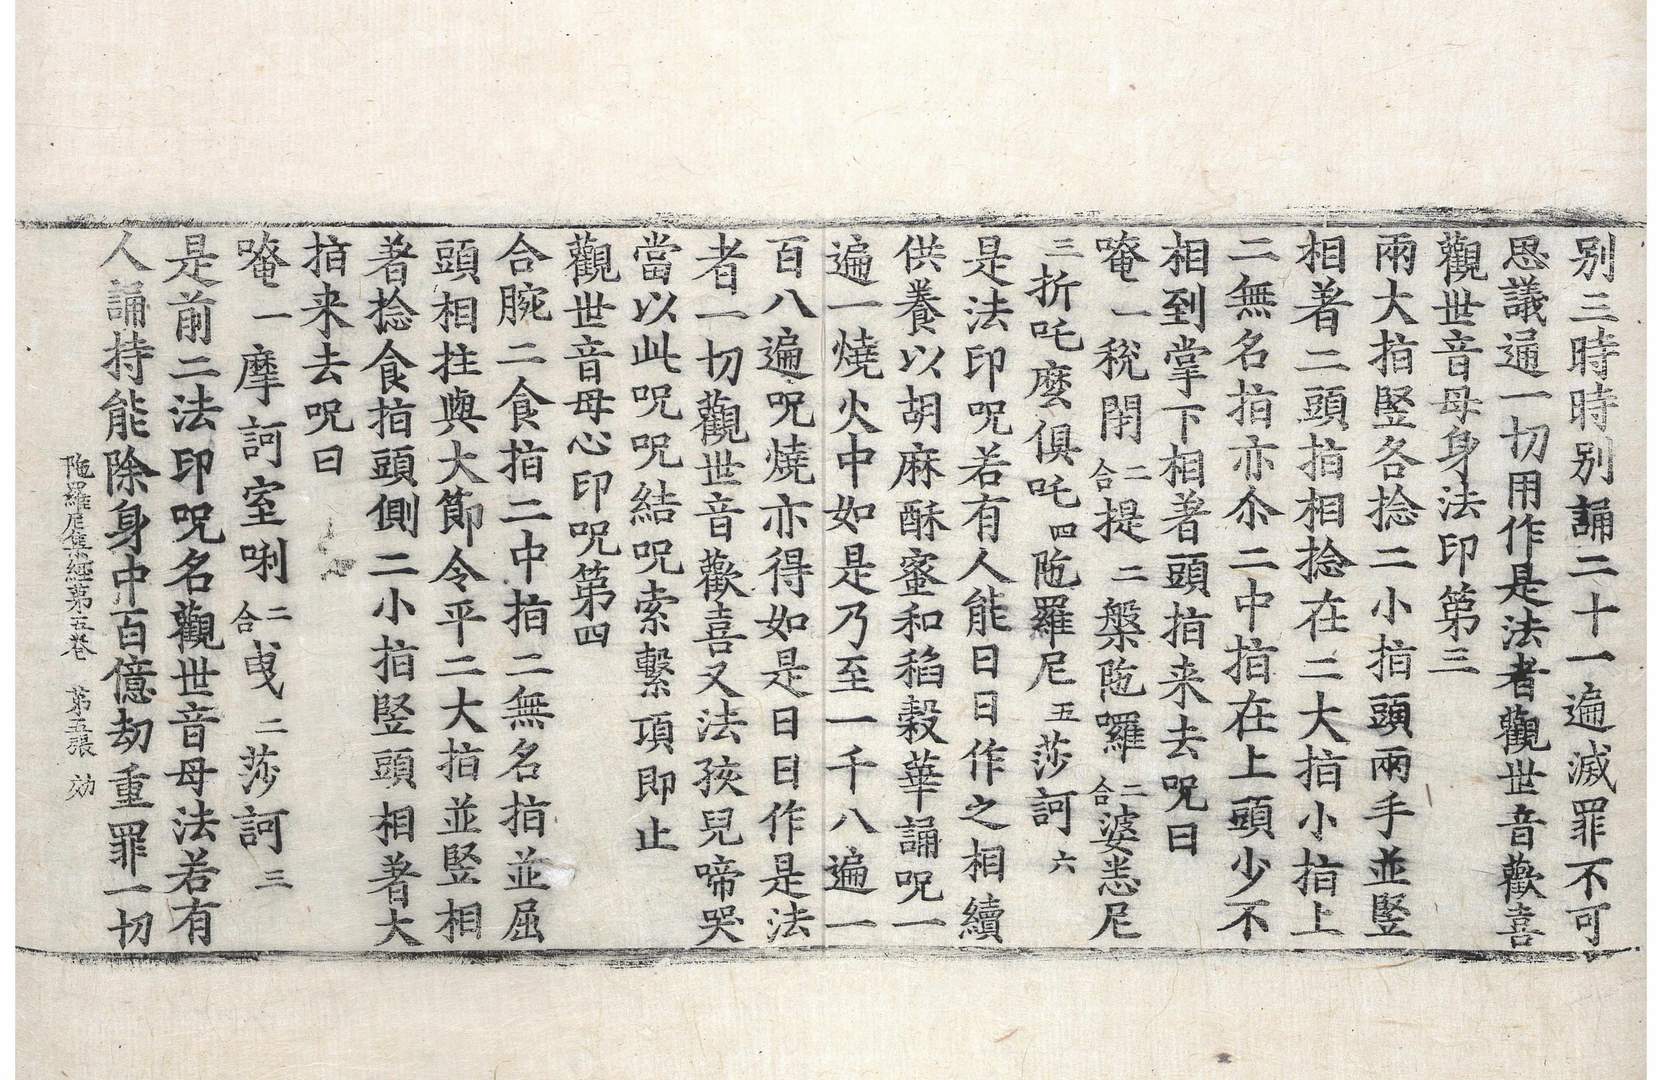 别三時時别誦二十一遍滅罪不可
思議通一切用作是法者觀世音歡喜
觀世音母身法印第三
兩大指竪各捻二小指頭兩手並竪
相著二頭指相捻在二大指小指上
二無名指亦尒二中指在上頭少不
相到掌下相著頭指来去呪曰
唵一稅閇二合提二槃陁囉二合婆悉尼
三折吒麽俱吒四陁羅尼五莎訶六
是法印呪若有人能日日作之相續
供養以胡麻酥蜜和稻穀華誦呪一
遍一燒火中如是乃至一千八遍一
百八遍呪燒亦得如是日日作是法
者一切觀世音歡喜又法孩兒啼哭
當以此呪呪結呪索繫項即止
觀世音母心印呪第四
合腕二食指二中指二無名指並屈
頭相拄與大節令平二大指並竪相
著捻食指頭側二小指竪頭相著大
指来去呪曰
唵一摩訶室唎二合曳二莎訶三
是前二法印呪名觀世音母法若有
人誦持能除身中百億劫重罪一切
陁羅尼集經第五卷 第五張 効